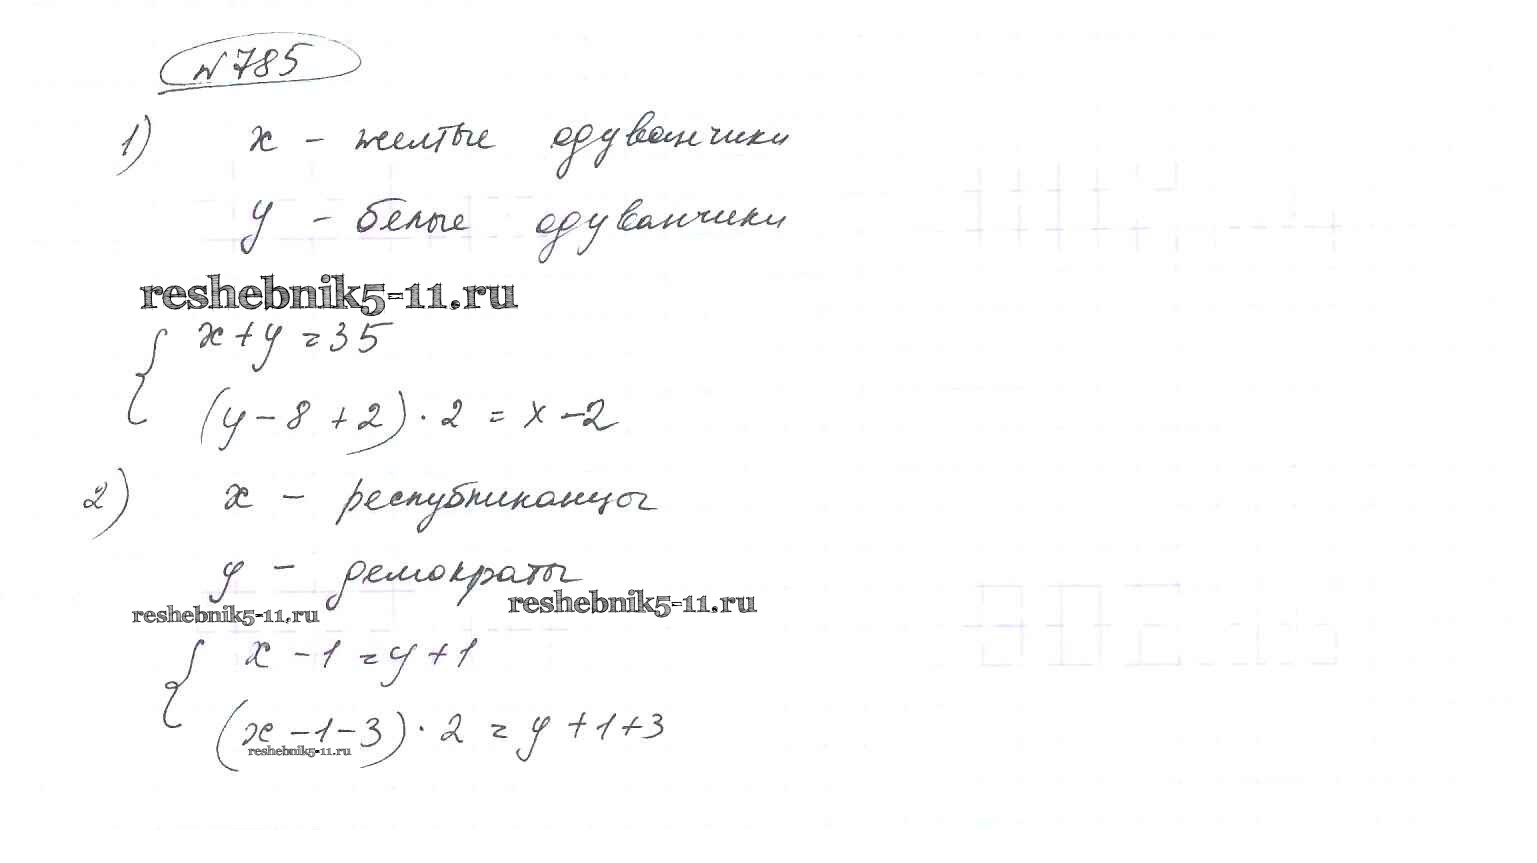 №785
1) x - желтые одуванчики
y - белые одуванчики
reshebnik5-11.ru
{ x + y = 35
(y - 8 + 2) · 2 = x - 2
2) x - республиканцы
y - демократы
reshebnik5-11.ru
reshebnik5-11.ru
{ x - 1 = y + 1
(x - 1 - 3) · 2 = y + 1 + 3
reshebnik5-11.ru